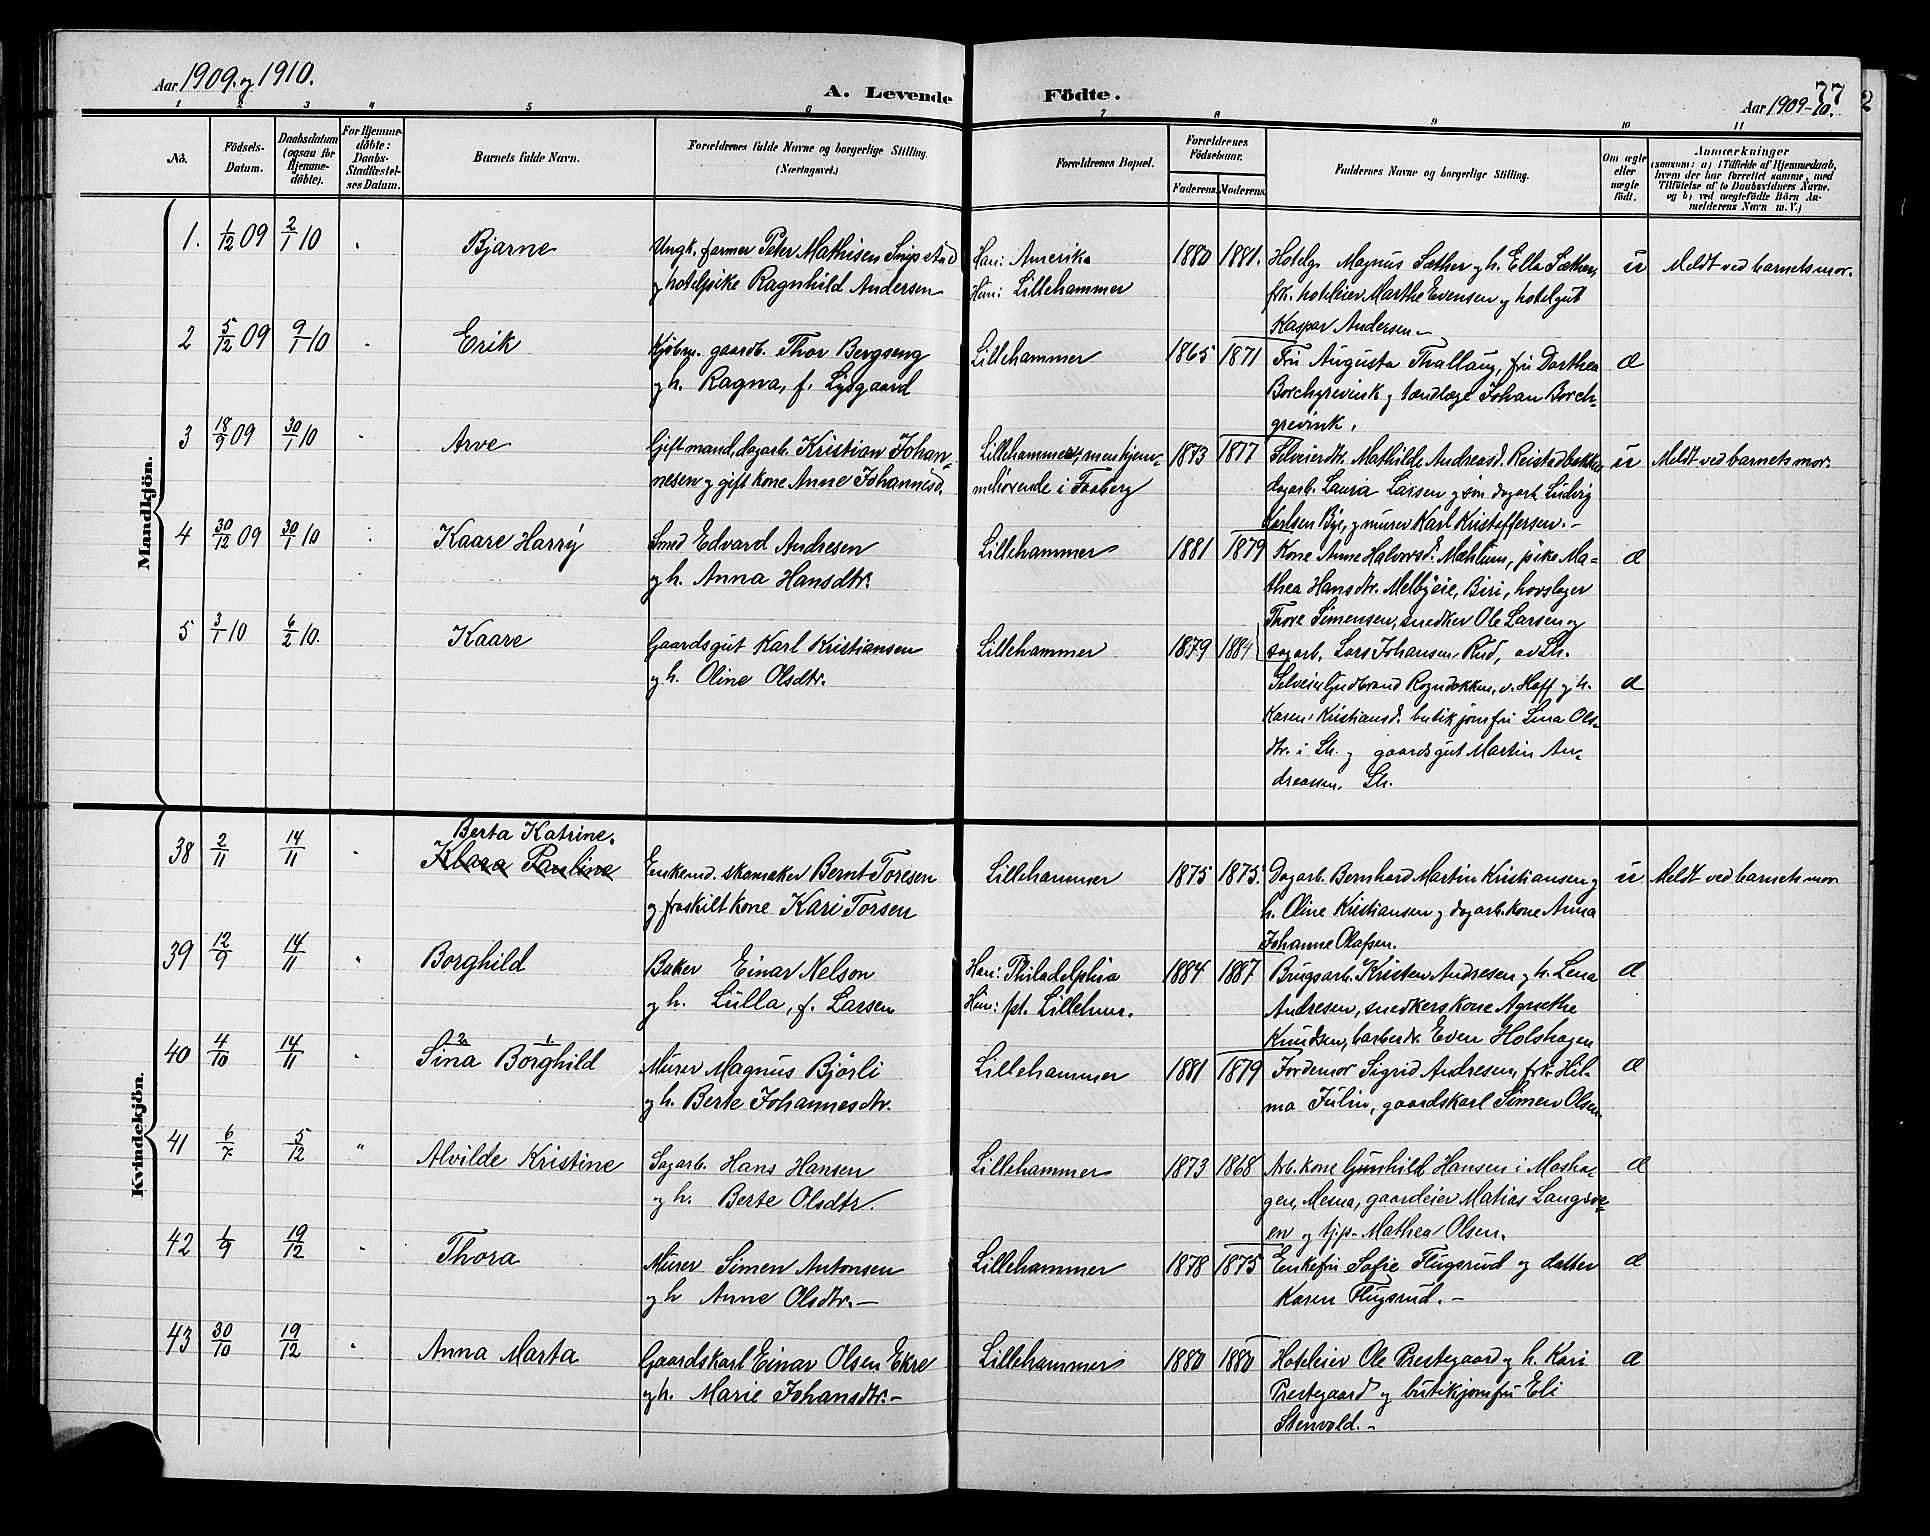 Aar 1909. og 1910.
A. Levende Födte.
77
Aar 1909-10.
1 2 3 4 5 6 7 8 9 10 11
No.
Födsels-Datum.
Daabsdatum (ogsaa for Hjemme-døbte).
For Hjemme-døbte: Daabs-Stadfæstel-ses Datum.
Barnets fulde Navn.
Forældrenes fulde Navne og borgerlige Stilling. (Næringsvei.)
Forældrenes Bopæl.
Forældrenes Födselsaar.
Faderens. Moderens.
Faddernes Navne og borgerlige Stilling.
Om ægte eller uægte födt.
Anmærkninger
(saasom: a) i Tilfælde af Hjemmedaab, hvem der har forrettet samme, med Tilföielse af to Daabsvidners Navne, og b) ved uægtefödte Börn An-melderens Navn m. V.)
Mandkjön.
1. 1/12 09 2/1 10 Bjarne
Ungk. farmer Peter Mathisen Snipstad
og hotelpike Ragnhild Andersen
Han: Amerika
Hun: Lillehammer
1880 1881.
Hotelg. Magnus Sæther og h. Ella Sæther,
frk. hoteleier Marthe Evensen og hotelgut
Kaspar Andersen.
u Meldt ved barnets mor.
2 5/12 09 9/1 10 Erik
Kjøbm. gaardb. Thor Bergseng
og h. Ragna, f. Lysgaard
Lillehammer
1865 1871
Fru Augusta Thallaug, fru Dorthea
Borchgrevink og tandlæge Johan Borch-
grevink.
æ
3 18/9 09 30/1 10 Arve
Gift mand, dagarb. Kristian Johan-
nesen og gift kone Anne Johannesd.
Lillehammer, men hjem-
mehörende i Faaberg
1873 1877
Selveierdtr. Mathilde Andreasd. Reistadbakken
dagarb. Laura Larsen og sön dagarb. Ludvig
Karlsen Bye, og murer Karl Kristoffersen.
u Meldt ved barnets mor.
4 30/12 09 30/1 10 Kaare Harry
Smed Edvard Andresen
og h. Anna Hansdtr.
Lillehammer
1881 1879
Kone Anne Halvorsd. Mæhlum, pike Ma-
thea Hansdtr. Melbyeie, Biri, hovslager
Thore Simensen, snedker Ole Larsen og
dagarb. Lars Johansen Rud, av Lh.
æ
5 3/1 10 6/2 10. Kaare
Gaardsgut Karl Kristiansen
og h. Oline Olsdtr.
Lillehammer
1879 1884
Selveier Gudbrand Rognbakken, v. Hoff og h.
Karen Kristiansd. butikjomfru Lina Ols-
dtr. i Lh. og gaardsgut Martin An-
dreassen, Lh.
æ
Kvindekjön.
38 2/11 14/11
Berta Katrine.
Klara Pauline
Enkemd. skomaker Bernt Toresen
og fraskilt kone Kari Torsen
Lillehammer
1875 1875.
Dagarb. Bernhard Martin Kristiansen og
h. Oline Kristiansen og dagarb.kone Anna
Johanne Olafsen.
u Meldt ved barnets mor
39 12/9 14/11 Borghild
Baker Einar Nelson
og h. Lulla, f. Larsen
Han: Philadelphia
Hun: pt. Lillehmr.
1884 1887
Brugsarb. Kristen Andresen og h. Lena
Andresen, snedkerskone Agnethe
Knudsen, barber Even Holshagen
æ
40 4/10 14/11
2. 1.
Sina Borghild
Murer Magnus Bjørli
og h. Berte Johannesdtr.
Lillehammer
1881 1879
Jordemor Sigrid Andresen, frk. Hil-
ma Julin, gaardskarl Simen Olsen.
æ
41 6/7 5/12 " Alvilde Kristine
Sagarb. Hans Hansen
og h. Berte Olsdtr.
Lillehammer
1873 1868
Arb. kone Gunhild Hansen i Mosha-
gen, Mesna, gaardeier Matias Langsve-
en og tjp. Mathea Olsen.
æ
42 1/9 19/12 Thora
Murer Simen Antonsen
og h Anne Olsdtr.-
Lillehammer
1878 1875
Enkefru Sofie Flugsrud og datter
Karen Flugsrud.-
æ
43 30/10 19/12 " Anna Marta
Gaardskarl Einar Olsen Ekre
og h. Marie Johansdtr.-
Lillehammer
1880 1880
Hoteleier Ole Prestegaard og h. Kari
Prestegaard og butikjomfru Eli
Stenvold.-
æ